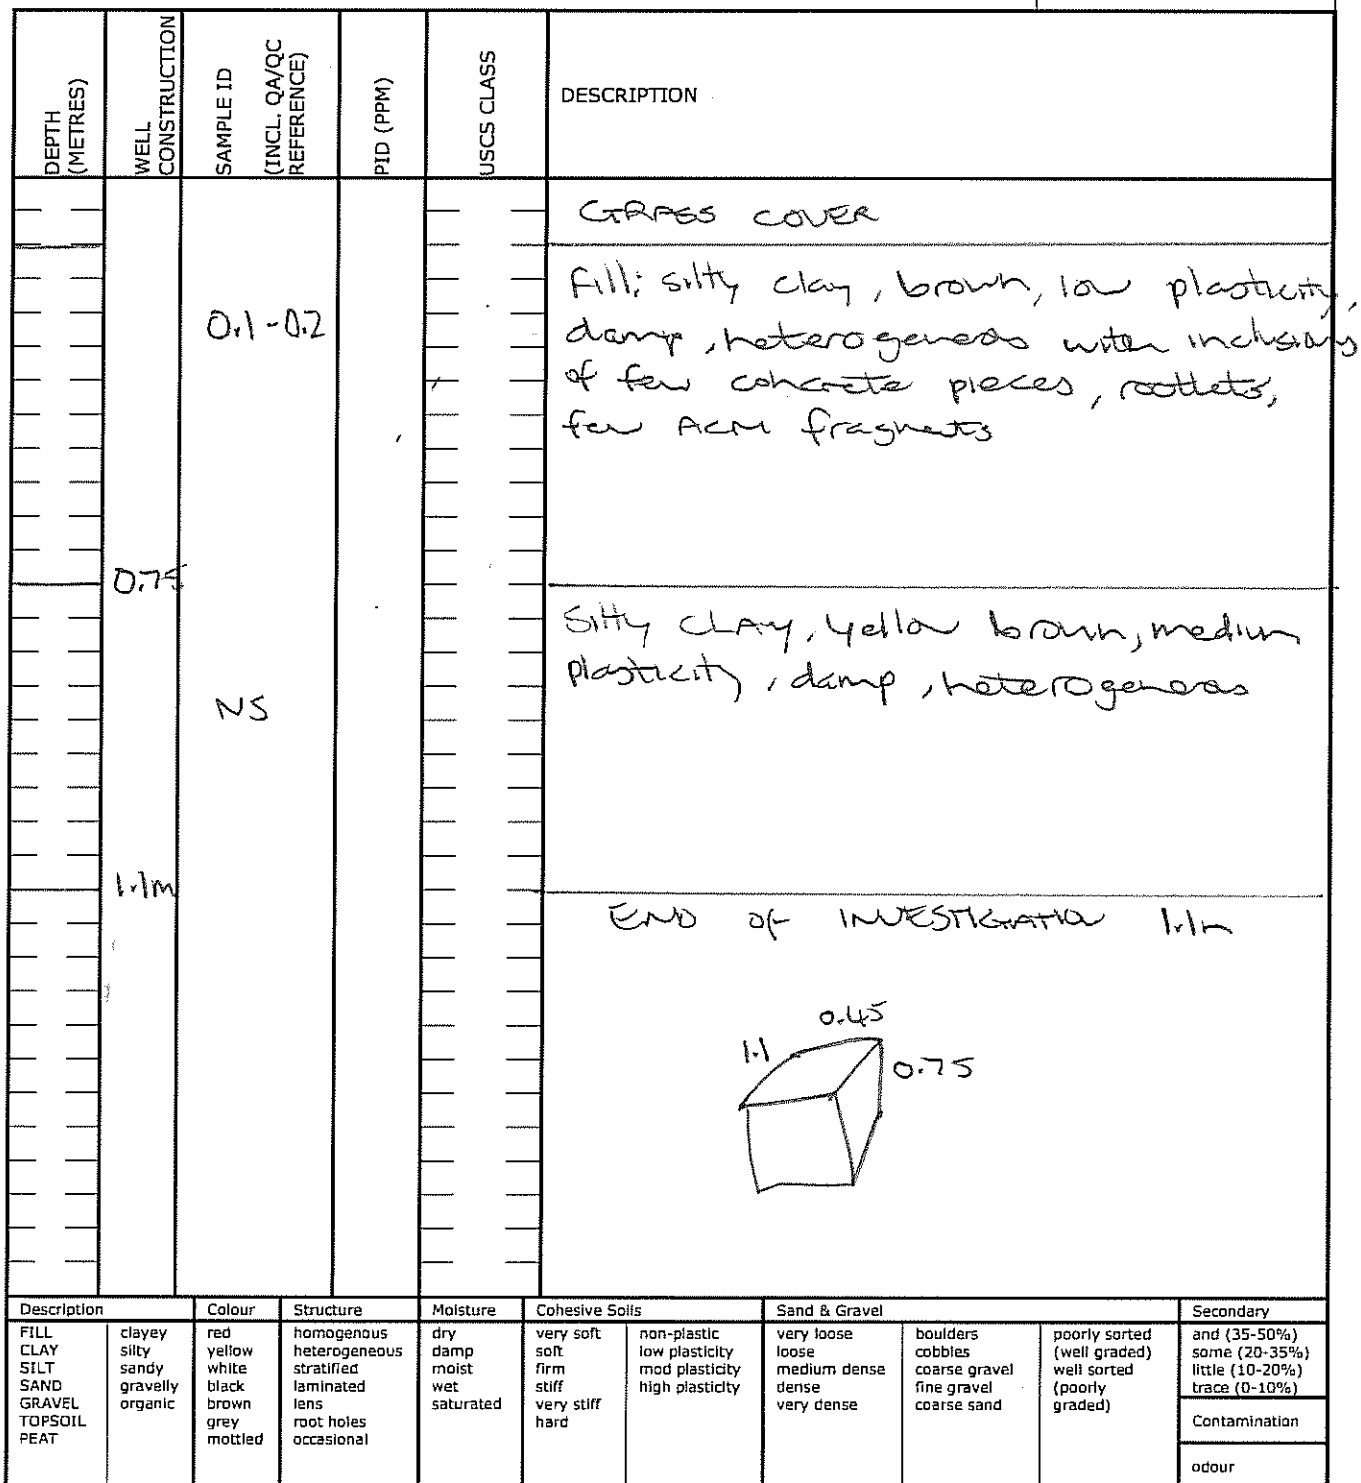 DEPTH
(METRES)
WELL
CONSTRUCTION
SAMPLE ID
(INCL. QA/QC
REFERENCE)
PID (PPM)
USCS CLASS
DESCRIPTION
GRASS COVER
Fill; silty clay, brown, low plasticity,
0.1-0.2
damp, heterogeneous with inclusions
of few concrete pieces, rootlets,
few ACM fragments
0.75
Silty CLAY, yellow brown, medium
plasticity, damp, heterogeneous
NS
1.1m
END OF INVESTIGATION 1.1m
0.45
1.1
0.75
Description
FILL
CLAY
SILT
SAND
GRAVEL
TOPSOIL
PEAT
clayey
silty
sandy
gravelly
organic
Colour
red
yellow
white
black
brown
grey
mottled
Structure
homogenous
heterogeneous
stratified
laminated
lens
root holes
occasional
Moisture
dry
damp
moist
wet
saturated
Cohesive Soils
very soft
soft
firm
stiff
very stiff
hard
non-plastic
low plasticity
mod plasticity
high plasticity
Sand & Gravel
very loose
loose
medium dense
dense
very dense
boulders
cobbles
coarse gravel
fine gravel
coarse sand
poorly sorted
(well graded)
well sorted
(poorly
graded)
Secondary
and (35-50%)
some (20-35%)
little (10-20%)
trace (0-10%)
Contamination
odour